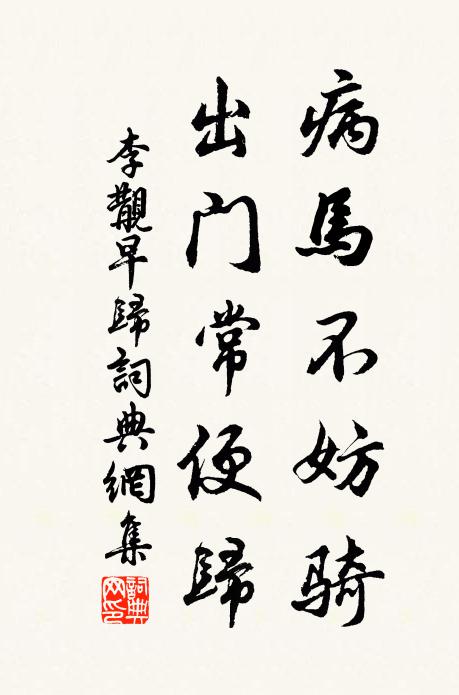 病馬不妨騎
出門常便歸
李觀早歸詞典網集
詞典网印